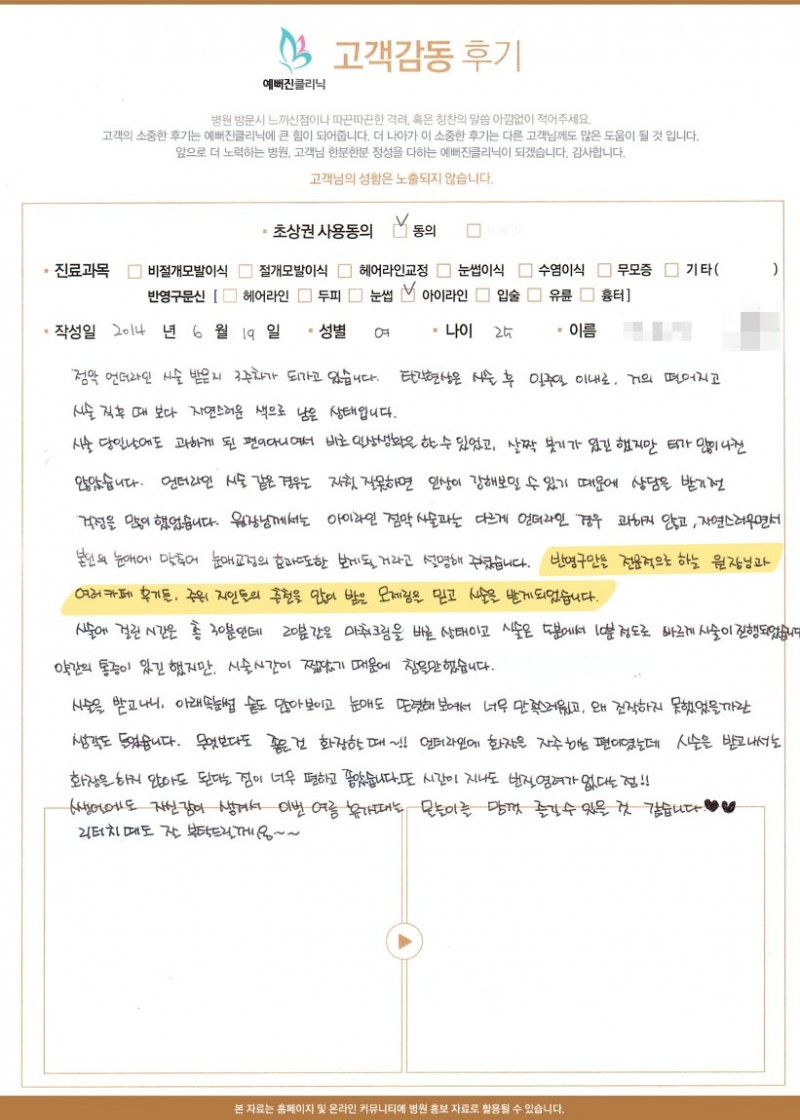 예뻐진클리닉
고객감동 후기
병원 방문시 느끼신점이나 따끈따끈한 격려, 혹은 칭찬의 말씀 아낌없이 적어주세요.
고객의 소중한 후기는 예뻐진클리닉에 큰 힘이 되어줍니다. 더 나아가 이 소중한 후기는 다른 고객님께도 많은 도움이 될 것 입니다.
앞으로 더 노력하는 병원, 고객님 한분한분 정성을 다하는 예뻐진클리닉이 되겠습니다. 감사합니다.
고객님의 성함은 노출되지 않습니다.
초상권 사용동의 동의
진료과목 비절개모발이식 절개모발이식 헤어라인교정 눈썹이식 수염이식 무모증 기타( )
반영구문신 [ 헤어라인 두피 눈썹 아이라인 입술 유륜 흉터 ]
작성일 2014 년 6 월 19 일 성별 여 나이 25 이름
점막 언더라인 시술 받은지 3주차가 되가고 있습니다. 탄각현상은 시술 후 일주일 이내로, 거의 떨어지고
시술 직후 때 보다 자연스러운 색으로 남은 상태입니다.
시술 당일날에도 과하게 된 편이아니여서 바로 일상생활은 할 수 있었고, 살짝 붓기가 있긴 했지만 티가 많이나진
않았습니다. 언더라인 시술 같은 경우는 자칫 잘못하면 인상이 강해보일 수 있기 때문에 상담을 받기전
걱정을 많이 했었습니다. 원장님께서는 아이라인 점막 시술과는 다르게 언더라인 경우 과하지 않고, 자연스러우면서
본인의 눈매에 맞추어 눈매교정의 효과또한 보게될거라고 설명해 주셨습니다. 반영구만을 전문적으로 하는 원장님과
여러카페 후기든, 주위 지인들의 추천을 많이 받은 모제림을 믿고 시술을 받게되었습니다.
시술에 걸린시간은 총 30분인데 20분간은 마취크림을 바른 상태이고 시술은 5분에서 10분정도로 빠르게 시술이 진행되었습니다
약간의 통증이 있긴 했지만, 시술시간이 짧았기 때문에 참을만했습니다.
시술을 받고나니, 아래속눈썹 숱도 많아보이고 눈매도 또렷해보여서 너무 만족스러웠고, 왜 진작하지 못했었을까란
생각도 들었습니다. 무엇보다도 좋은건 화장할때~!! 언더라인에 화장은 자주하는 편이였는데 시술은 받고나서는
화장을 하지 않아도 된다는 점이 너무 편하고 좋았습니다. 또 시간이 지나도 번질염려가 없다는점!!
쌩얼에도 자신감이 생겨서 이번 여름 휴가때는 물놀이를 맘껏 즐길수 있을 것 같습니다.♥♥
리터치때도 잘 부탁드릴께요~~
본 자료는 홈페이지 및 온라인 커뮤니티에 병원 홍보 자료로 활용될 수 있습니다.